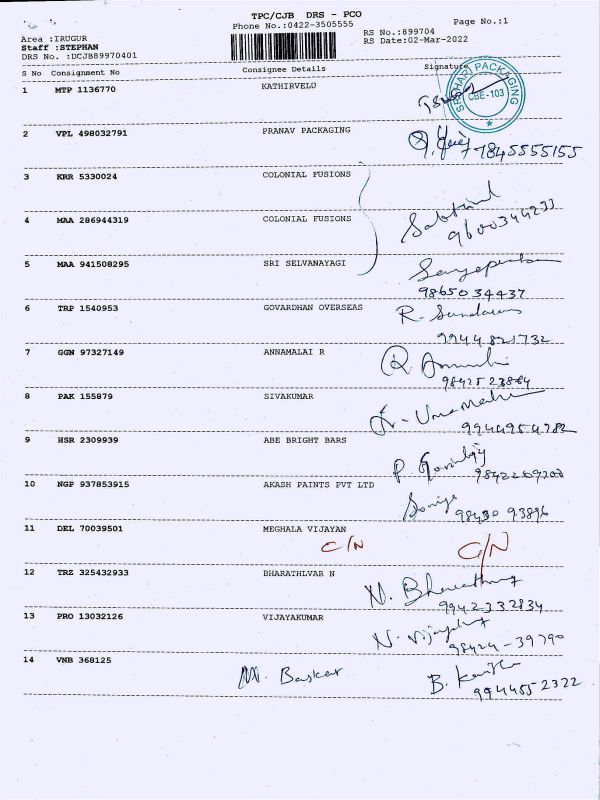 TPC/CJB DRS - PCO
Phone No.:0422-3505555
Page No.:1
Area :IRUGUR
RS No.:899704
Staff :STEPHAN
RS Date:02-Mar-2022
DRS No. :DCJB89970401
S No Consignment No Consignee Details Signature
SRI HARI PACKAGING
CBE-103
1 MTP 1136770 KATHIRVELU
2 VPL 498032791 PRANAV PACKAGING
7845555155
3 KRR 5330024 COLONIAL FUSIONS
4 MAA 286944319 COLONIAL FUSIONS
9600344233
5 MAA 941508295 SRI SELVANAYAGI
9865034437
6 TRP 1540953 GOVARDHAN OVERSEAS R. Sundaram
9944821732
7 GGN 97327149 ANNAMALAI R
9842523884
8 PAK 155879 SIVAKUMAR
9944954782
9 HSR 2309939 ABE BRIGHT BARS
10 NGP 937853915 AKASH PAINTS PVT LTD
98430 93896
11 DEL 70039501 MEGHALA VIJAYAN
C/N C/N
12 TRZ 325432933 BHARATHLVAR N
9942332834
13 PRO 13032126 VIJAYAKUMAR
98424-39790
14 VNB 368125 M. Baskar
9944552322